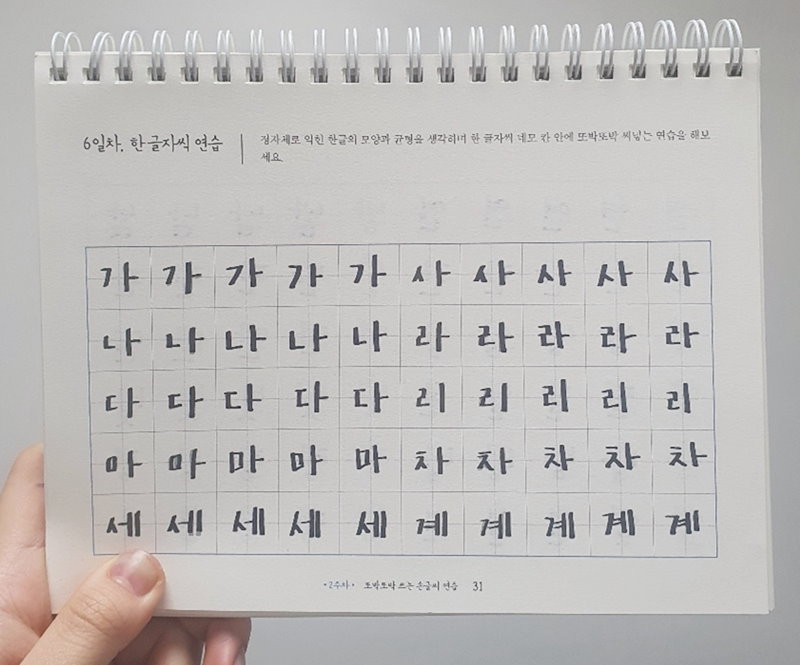 6일차. 한 글자씩 연습
정자체로 익힌 한글의 모양과 균형을 생각하며 한 글자씩 네모 칸 안에 또박또박 써넣는 연습을 해보
세요.
가 가 가 가 가 사 사 사 사 사
나 나 나 나 나 라 라 라 라 라
다 다 다 다 다 리 리 리 리 리
마 마 마 마 마 차 차 차 차 차
세 세 세 세 세 계 계 계 계 계
•2주차• 또박또박 쓰는 손글씨 연습 31